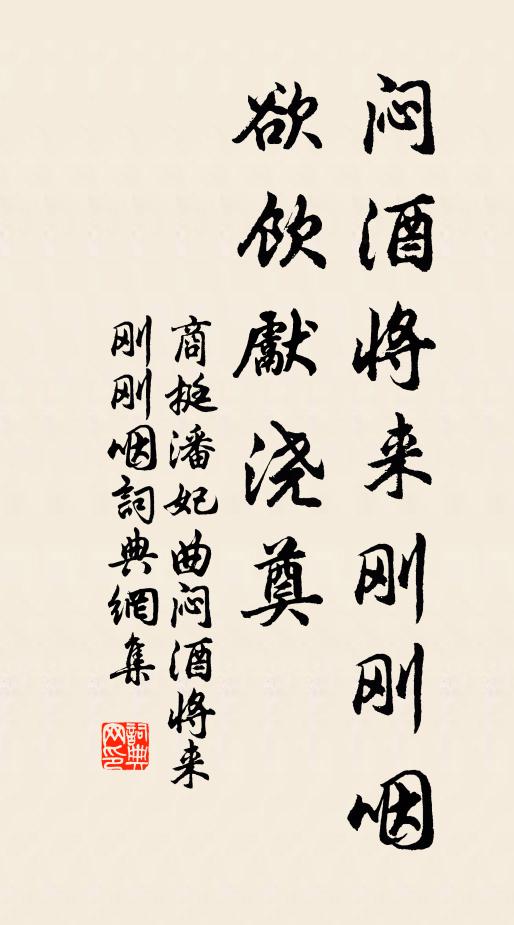 闷酒将来刚刚咽
欲饮獻浇奠
商挺潘妃曲闷酒将来
刚刚咽詞典網集
詞典网印